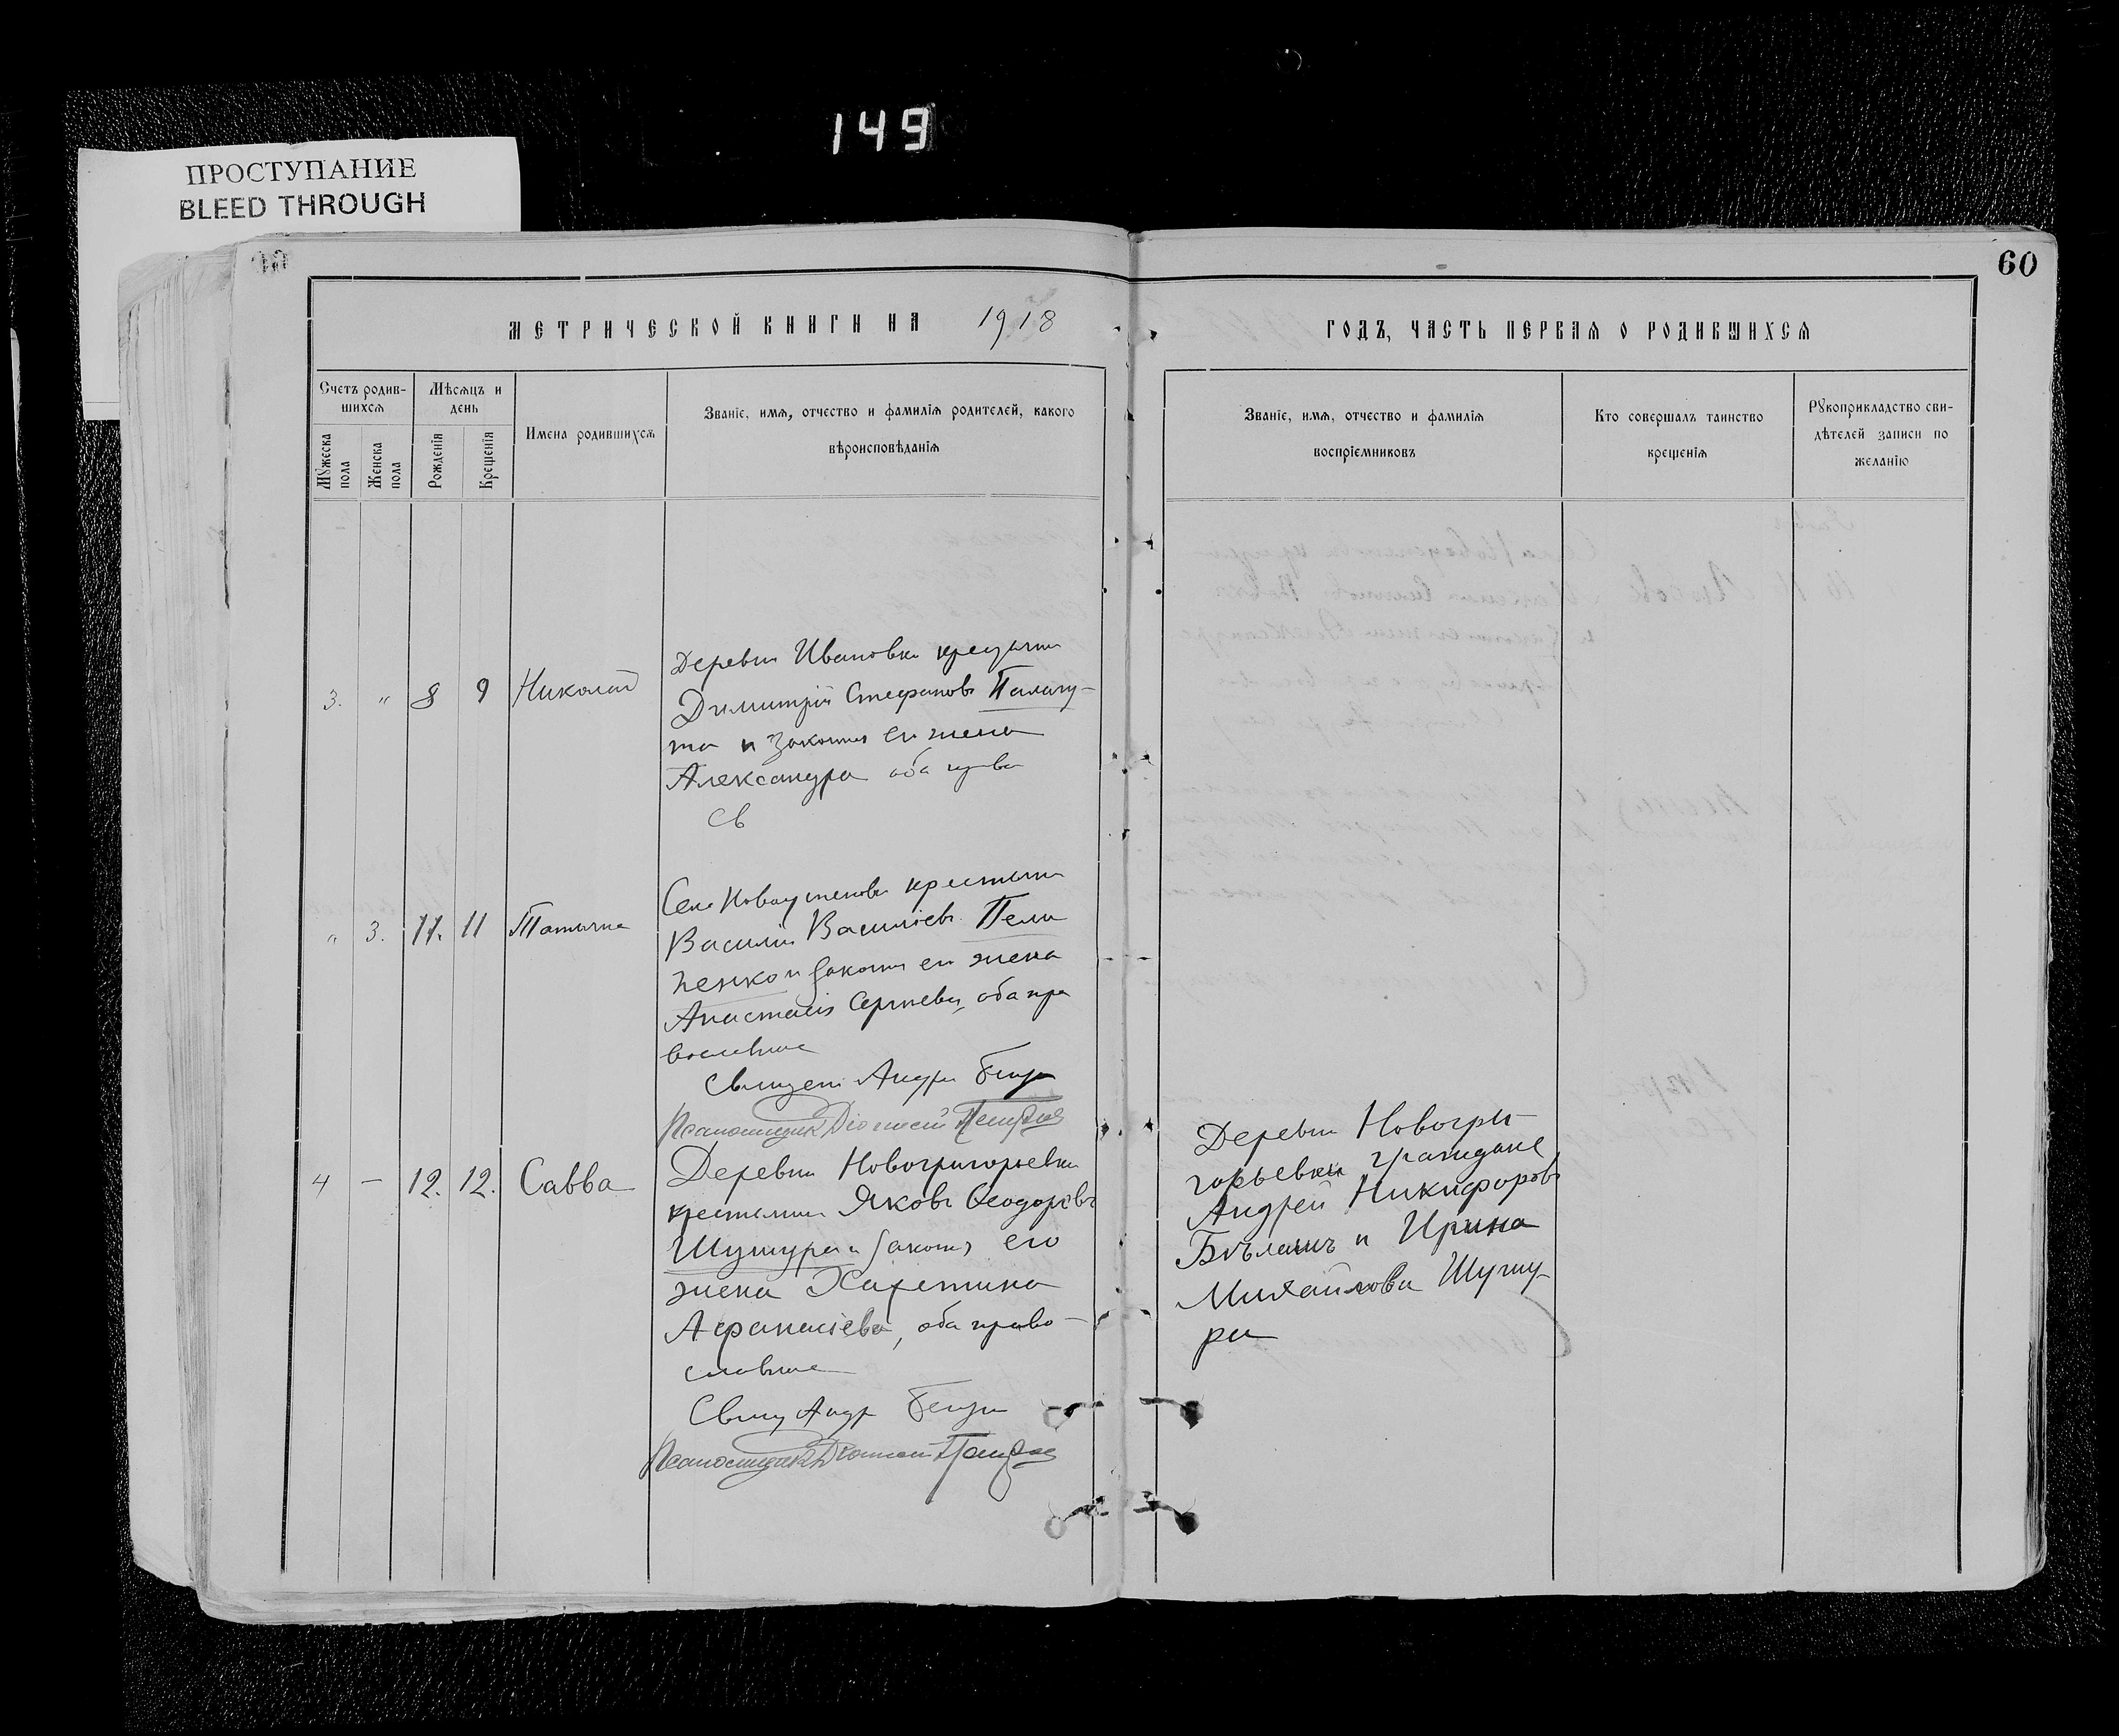 149
ПРОСТУПАНИЕ
BLEED THROUGH
60
МЕТРИЧЕСКОЙ КНИГИ НА 1918
ГОДЪ, ЧАСТЬ ПЕРВАЯ О РОДИВШИХСЯ
Счетъ родив-
шихся
Мѣсяцъ и
день
Мужеска
пола
Женска
пола
Рожденія
Крещенія
Имена родившихся
Званіе, имя, отчество и фамилія родителей, какого
вѣроисповѣданія
Званіе, имя, отчество и фамилія
воспріемниковъ
Кто совершалъ таинство
крещенія
Рукоприкладство сви-
дѣтелей записи по
желанію
3. " 8 9 Николай
Деревни Ивановки
Димитрій Стефановъ Палагу-
та и законная его жена
Александра оба
Св
" 3. 11. 11 Татьяна
Василій Васильевъ Пели
пенко и законная его жена
Анастасія Сергіева, оба пра
вославные
Андрей
Псаломщикъ
4 — 12. 12. Савва
Деревни Новогригорьевки
крестьянинъ Яковъ Ѳеодоровъ
Шушура и законная его
жена Харитина
Афанасіева, оба право-
славные
Свящ Андр
Псаломщикъ
Деревни Новогри-
горьевки граждане
Андрей Никифоровъ
и Ирина
Михайлова Шушу-
ра